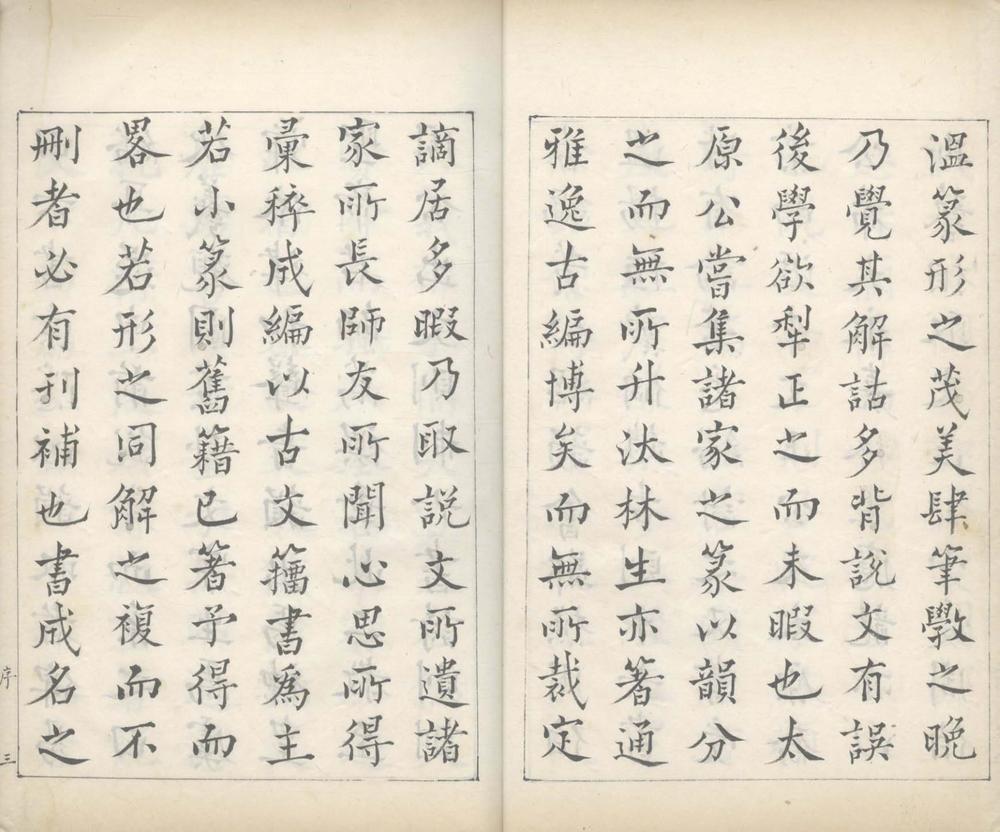 溫篆形之茂美肆筆斆之晚
乃覺其解詁多背説文有誤
後學欲犁正之而未暇也太
原公嘗集諸家之篆以韻分
之而無所升汰林生亦著通
雅逸古編博矣而無所裁定
謫居多暇乃取説文所遺諸
家所長師友所聞心思所得
彙稡成編以古文籀書爲主
若小篆則舊籍已著予得而
畧也若形之同解之複而不
刪者必有刊補也書成名之
序
三